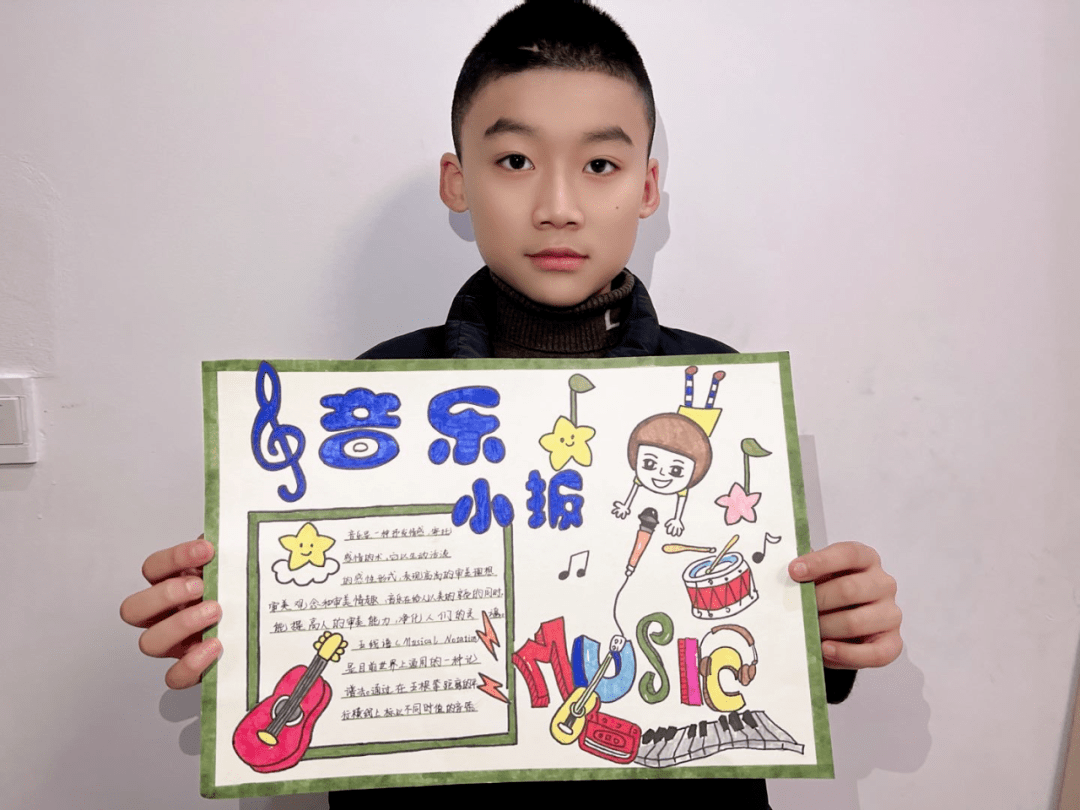 音乐
小报
音乐是一种抒发情感、寄托
感情的艺术,它以生动活泼
的感性形式,表现高尚的审美理想
审美观念和审美情趣。音乐在给人以美的享受的同时,
能提高人的审美能力,净化人们的灵魂。
五线谱(Musical Notation)
是目前世界上通用的一种记
谱法。通过在五根等距离的平
行横线上标以不同时值的音符
MUSIC
L